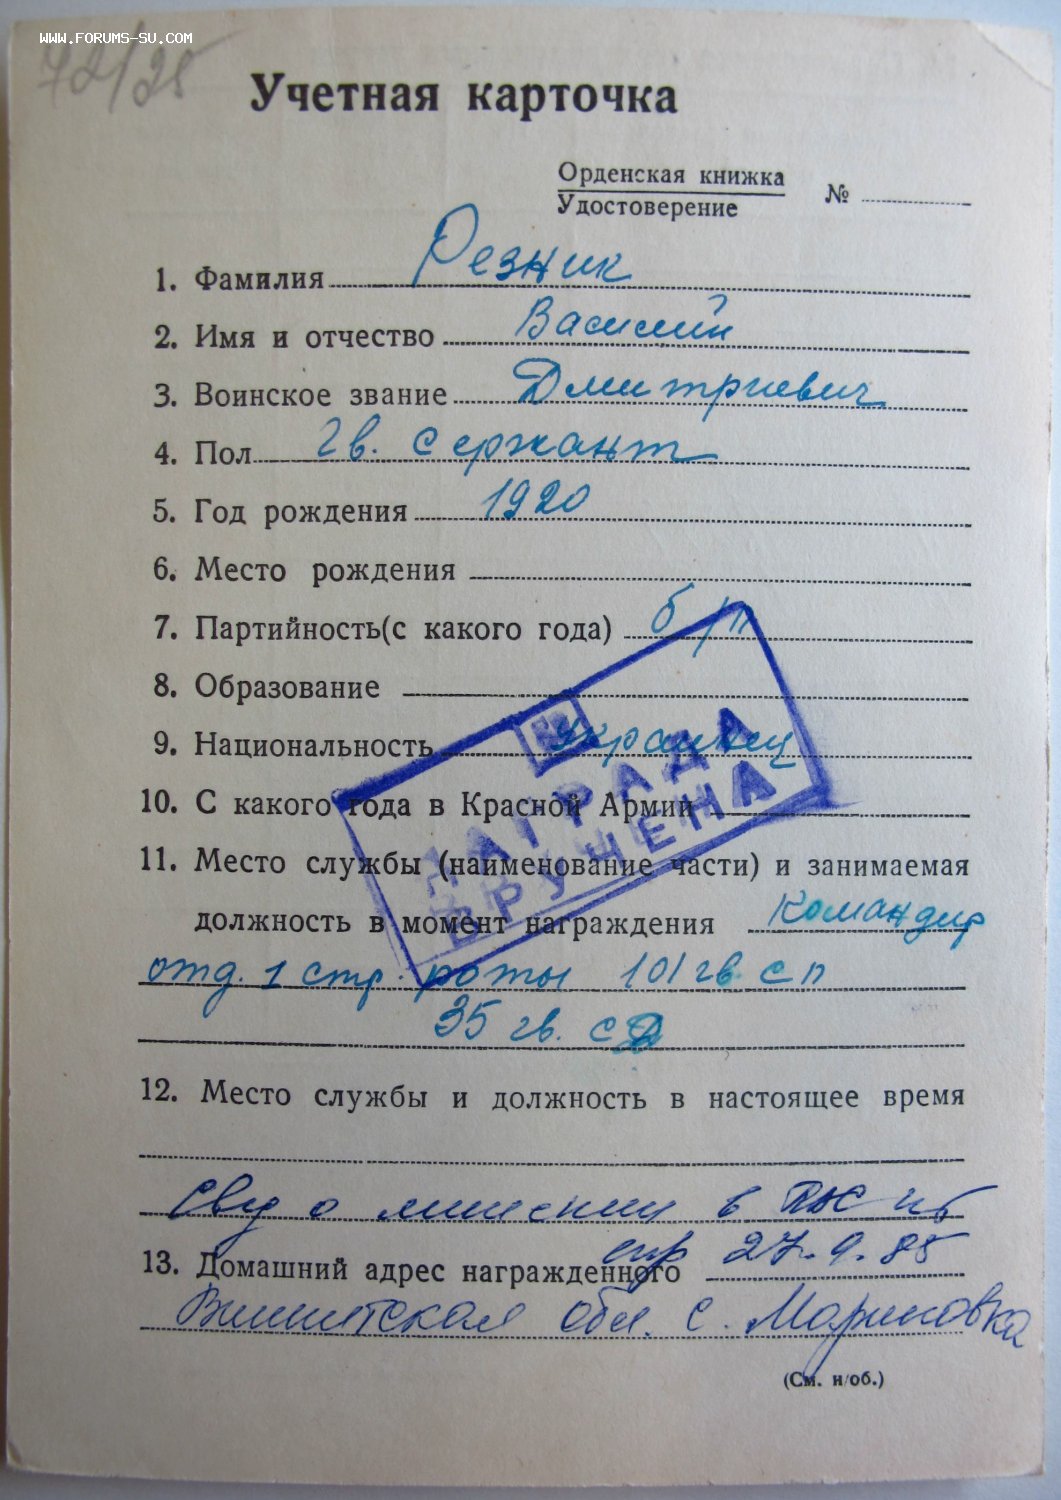 WWW.FORUMS-SU.COM
72/25
Учетная карточка
Орденская книжка
Удостоверение №
1. Фамилия Резник
2. Имя и отчество Василий
3. Воинское звание Дмитриевич
4. Пол гв. сержант
5. Год рождения 1920
6. Место рождения
7. Партийность(с какого года) б/п
8. Образование
9. Национальность украинец
10. С какого года в Красной Армии
НАГРАДА
ВРУЧЕНА
11. Место службы (наименование части) и занимаемая
должность в момент награждения Командир
отд. 1 стр. роты 101 гв. сп
35 гв. сд
12. Место службы и должность в настоящее время
о в
27.9.85
13. Домашний адрес награжденного
обл. с. Мариновка
(См. н/об.)